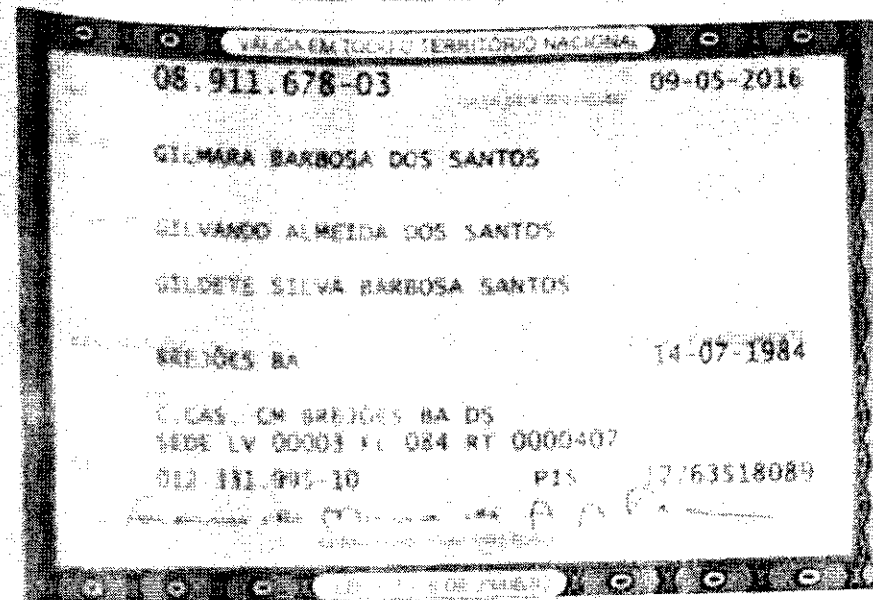 VÁLIDA EM TODO O TERRITÓRIO NACIONAL
08.911.678-03 09-05-2016
GILMARA BARBOSA DOS SANTOS
GILVANDO ALMEIDA DOS SANTOS
GILDETE SILVA BARBOSA SANTOS
BREJÕES BA 14-07-1984
C.CAS. CM BREJÕES BA DS
SEDE LV 00003 FL 084 RT 0000407
PIS